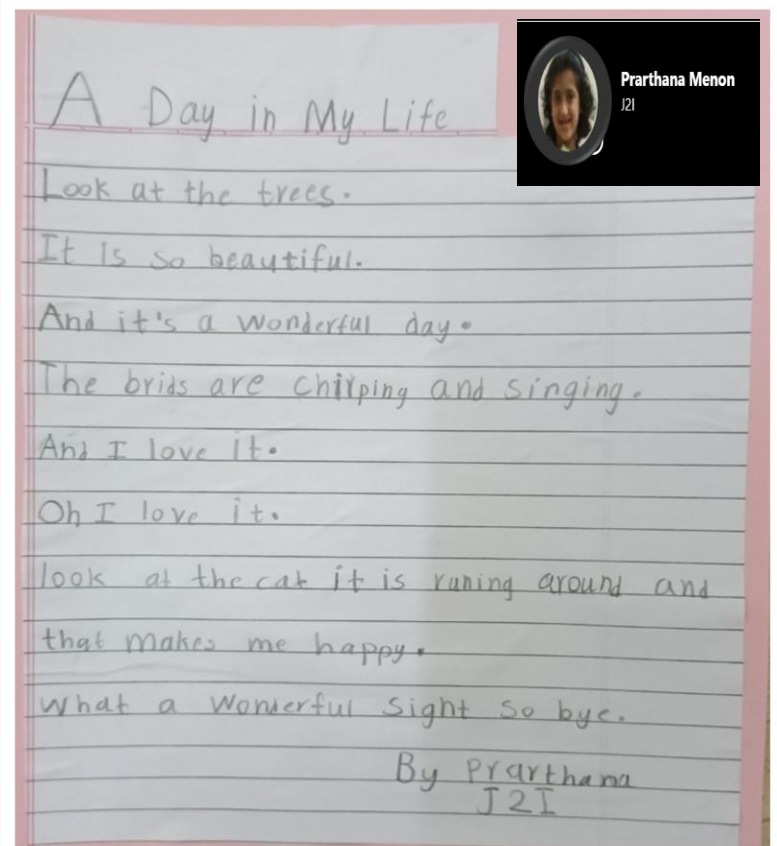 A Day in My Life
Prarthana Menon
J2I
Look at the trees.
It is so beautiful.
And it's a wonderful day.
The brids are chirping and singing.
And I love it.
Oh I love it.
look at the cat it is runing around and
that makes me happy.
What a wonderful sight so bye.
By Prarthana
J2I